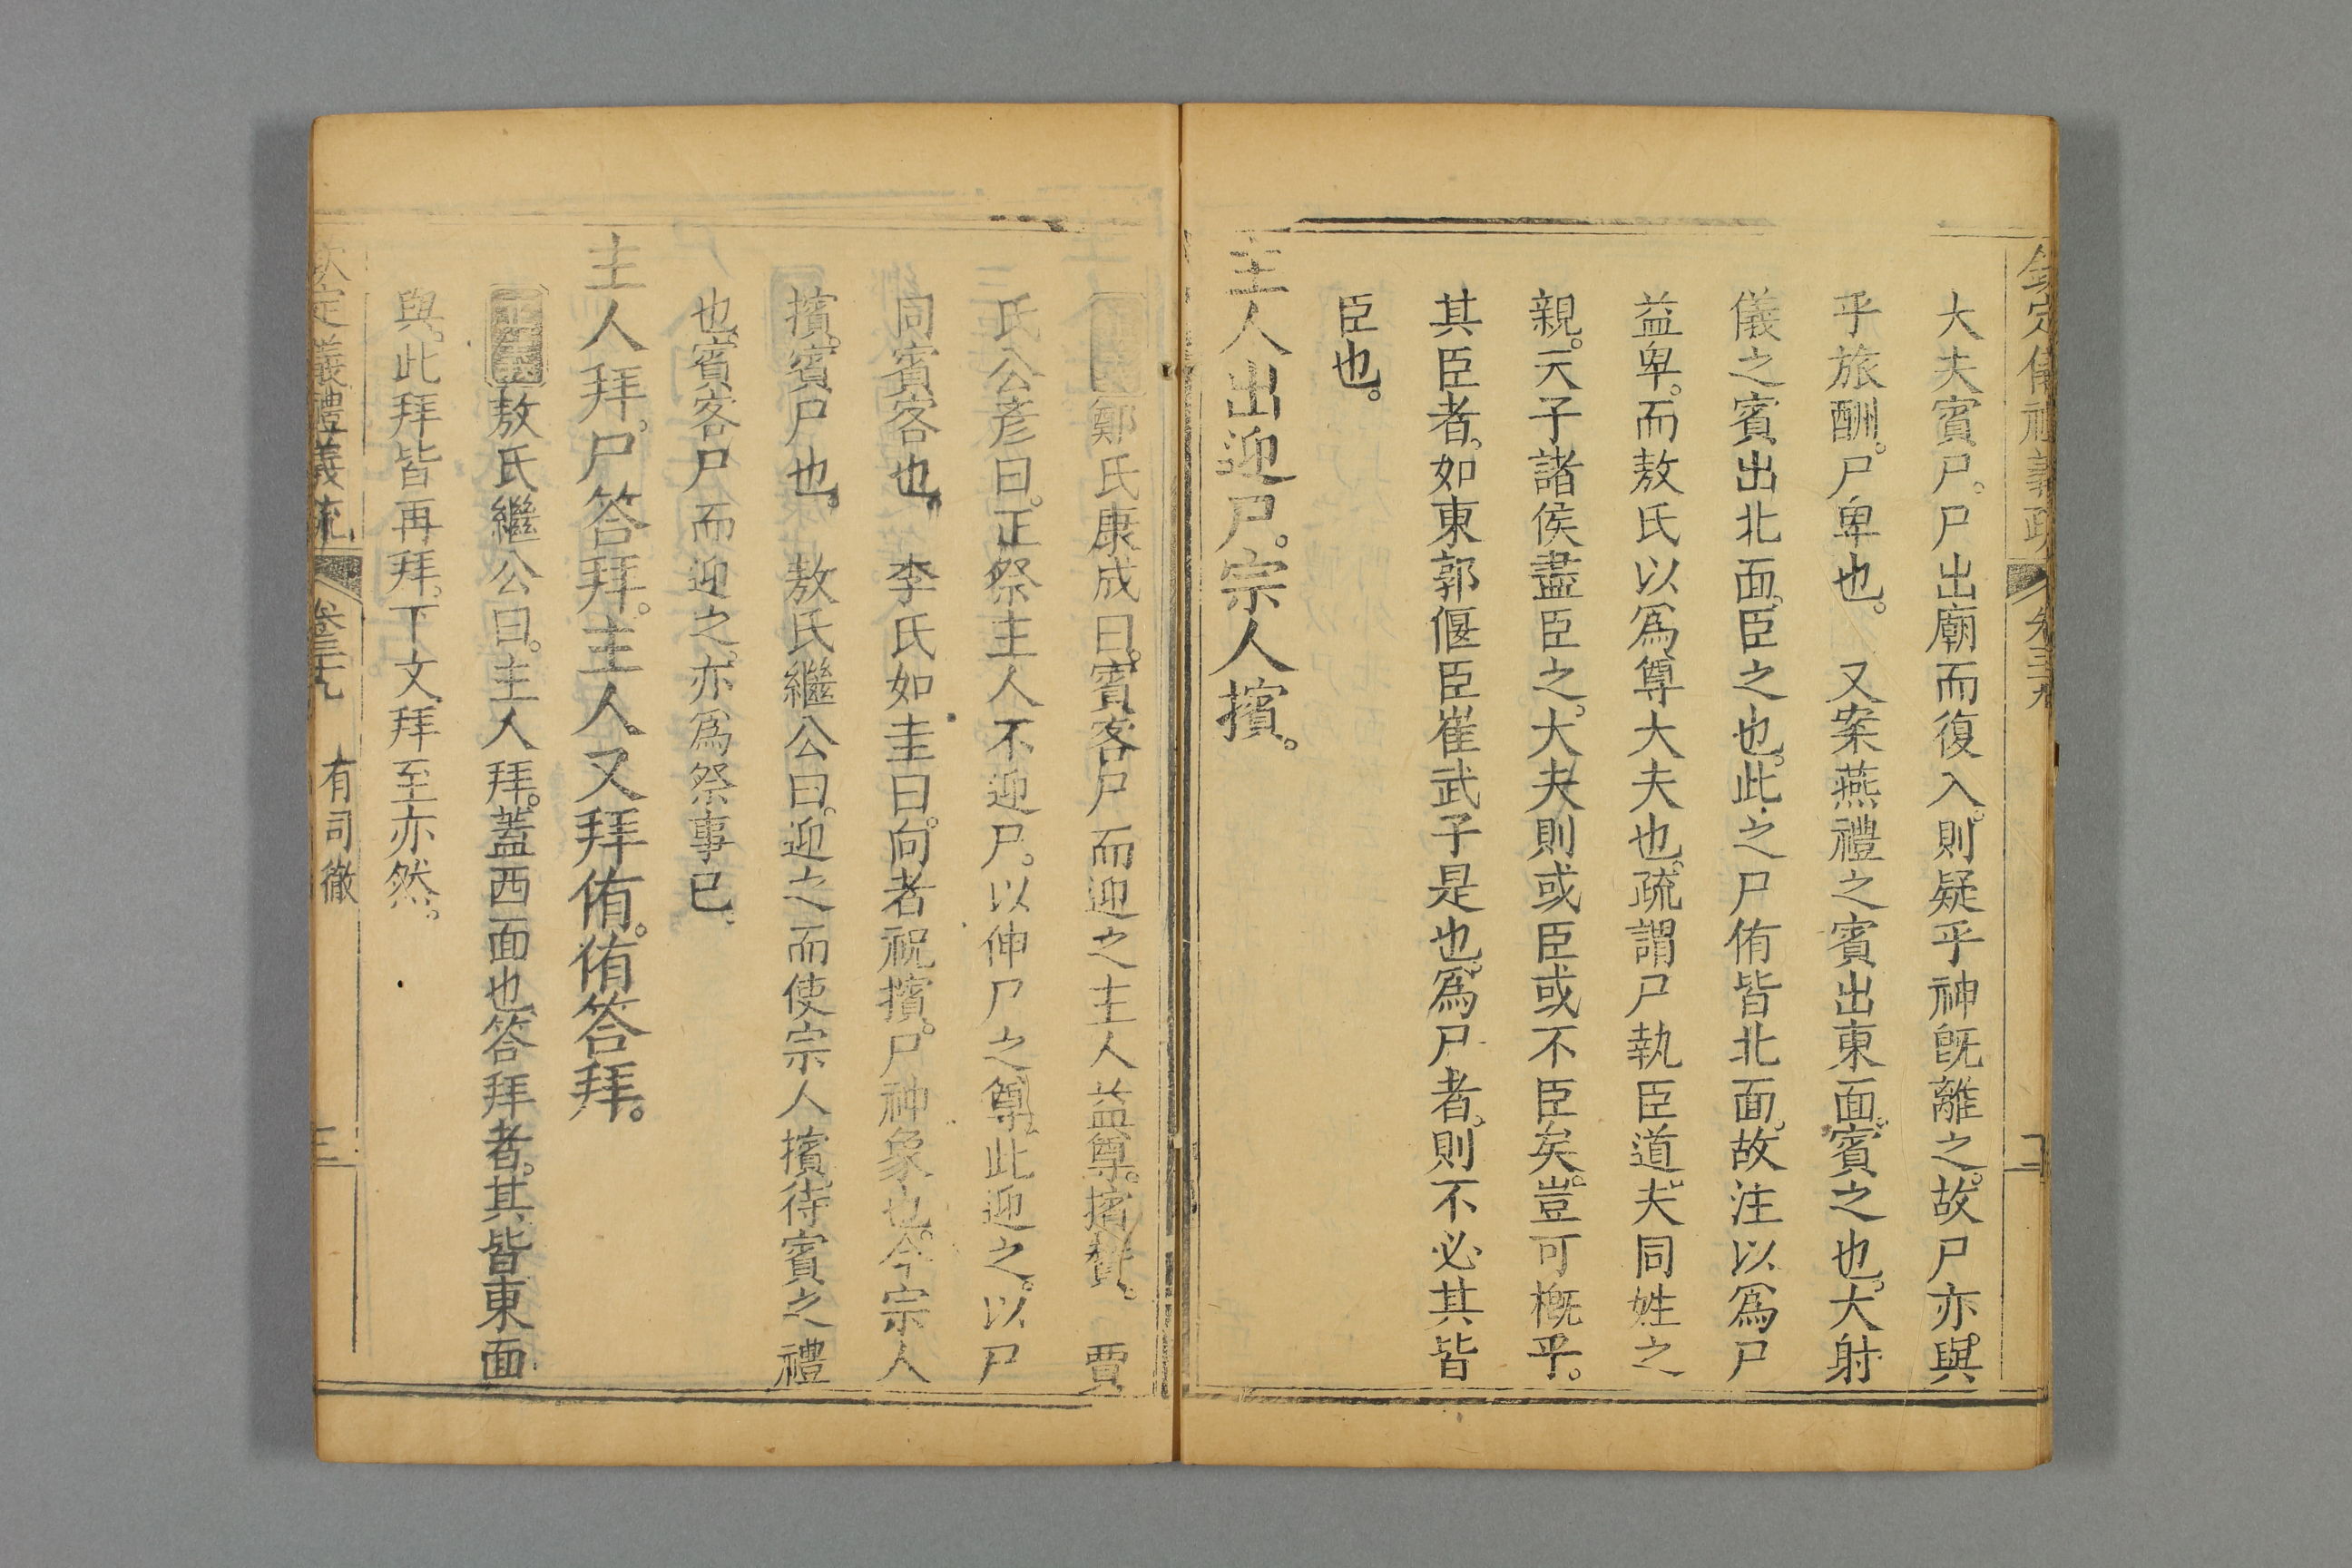 欽定儀禮義疏 卷三十九 二
大夫賓尸。尸出廟而復入。則疑乎神旣離之。故尸亦與
乎旅酬。尸卑也。 又案燕禮之賓出東面。賓之也。大射
儀之賓出北面。臣之也。此之尸侑皆北面。故注以爲尸
益卑。而敖氏以爲尊大夫也。疏謂尸執臣道。夫同姓之
親。天子諸侯盡臣之。大夫則或臣或不臣矣。豈可槪乎。
其臣者。如東郭偃臣崔武子是也。爲尸者。則不必其皆
臣也。
主人出迎尸。宗人擯。
鄭氏康成曰。賓客尸而迎之主人益尊。擯贊。 賈
氏公彥曰。正祭主人不迎尸。以伸尸之尊。此迎之。以尸
同賓客也。 李氏如圭曰。向者祝擯。尸神象也。今宗人
擯。賓尸也。 敖氏繼公曰。迎之而使宗人擯。待賓之禮
也。賓客尸而迎之。亦爲祭事已。
主人拜。尸答拜。主人又拜侑。侑答拜。
敖氏繼公曰。主人拜。蓋西面也。答拜者。其皆東面
與。此拜皆再拜。下文拜至亦然。
欽定義禮義疏 卷三十九 有司徹 三